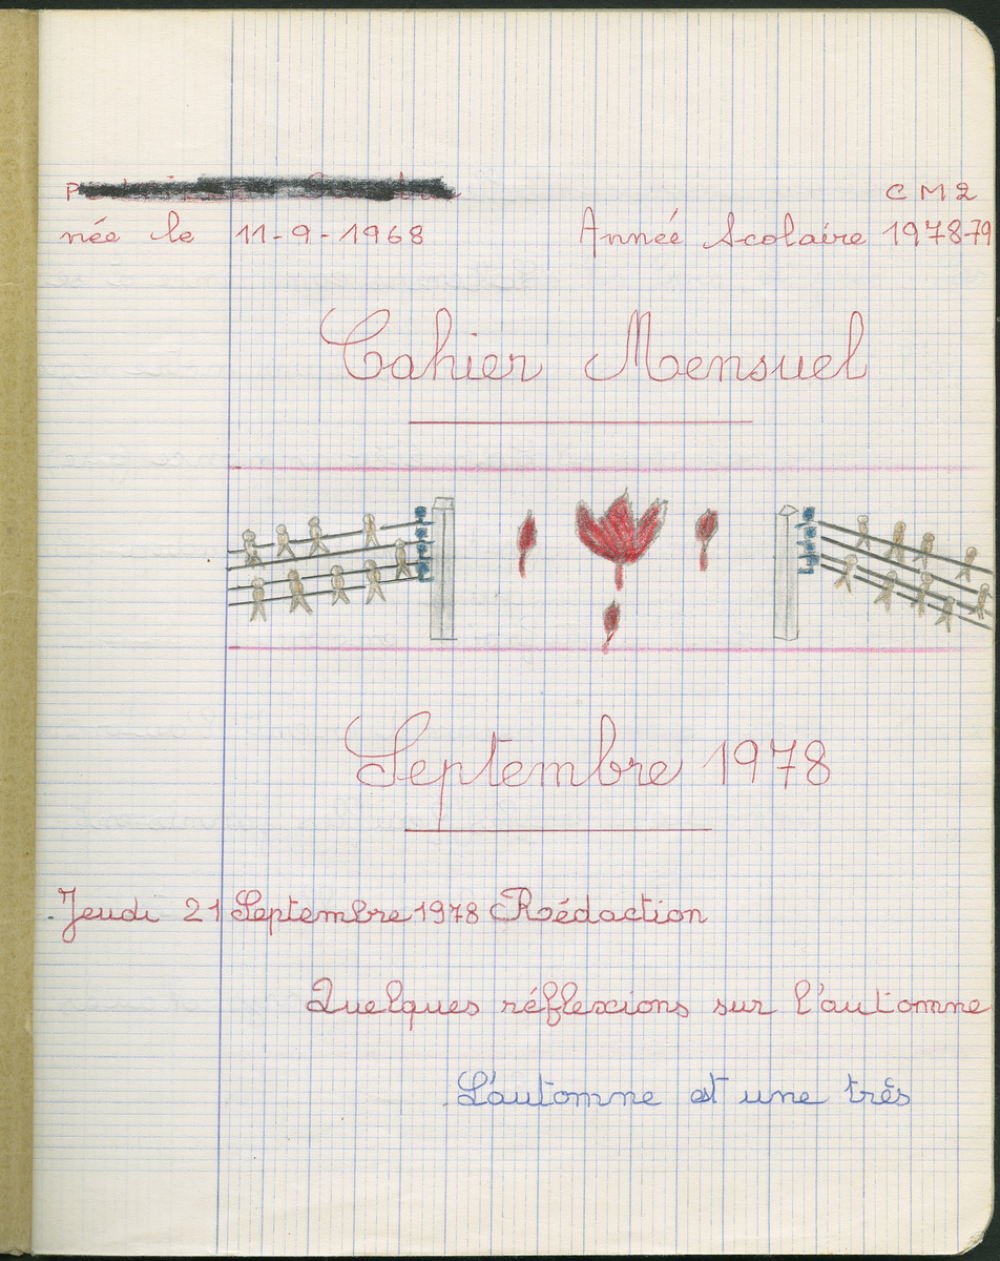 CM2
née le 11-9-1968 Année Scolaire 1978-79
Cahier Mensuel
Septembre 1978
Jeudi 21 Septembre 1978 Rédaction
Quelques réflexions sur l'automne
L'automne est une très